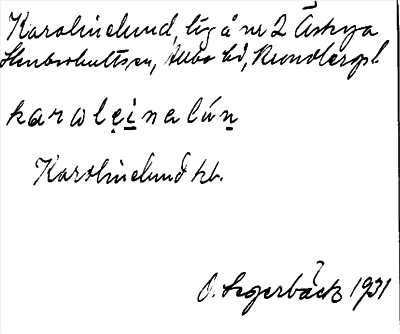 Karolinelund, lig å nr 2 Äskya
Stenbrohults sn, Allbo hd, Kronobergs l
karolẹi̱nalúṉ
Karolinelund hb.
O. Segerbäck 1931